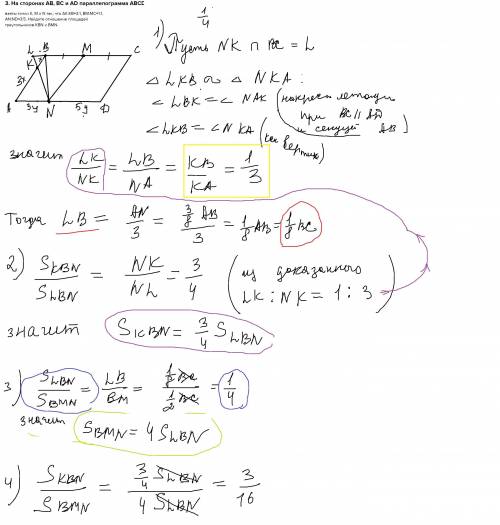 3. На сторонах AB, BC и AD параллелограмма ABCD
взяты точки K, M и N так, что AK:KB=3:1, BM:MC=1:1,
AN:ND=3:5. Найдите отношение площадей
треугольников KBN и BMN.
1/4
L B M C
K
3x
A 3y N 5y D
1) Пусть NK ∩ BC = L
△ LKB ∾ △ NKA :
∠ LBK = ∠ NAK (накрест лежащие
при BC || AD
и секущей AB)
∠ LKB = ∠ NKA (как вертик)
значит LK/NK = LB/NA = KB/KA = 1/3
Тогда LB = AN/3 = 3/8 AB/3 = 1/8 AB = 1/8 BC
2) S KBN/S LBN = NK/NL = 3/4 (из доказанного
LK : NK = 1 : 3)
значит S KBN = 3/4 S LBN
3) S LBN/S BMN = LB/BM = 1/8 BC/1/2 BC = 1/4
значит
S BMN = 4 S LBN
4) S KBN/S BMN = 3/4 S LBN/4 S LBN = 3/16